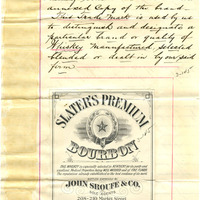 annexed Copy of the brand-
This Trade Mark is used by us
to distinguish and designate a
particular brand or quality of
Whiskey manufactured, selected
blended or dealt in by our said
firm
SLATER'S PREMIUM
BOURBON
JOHN SROUFE & CO.
SOLE AGENTS
208-210 Market Street